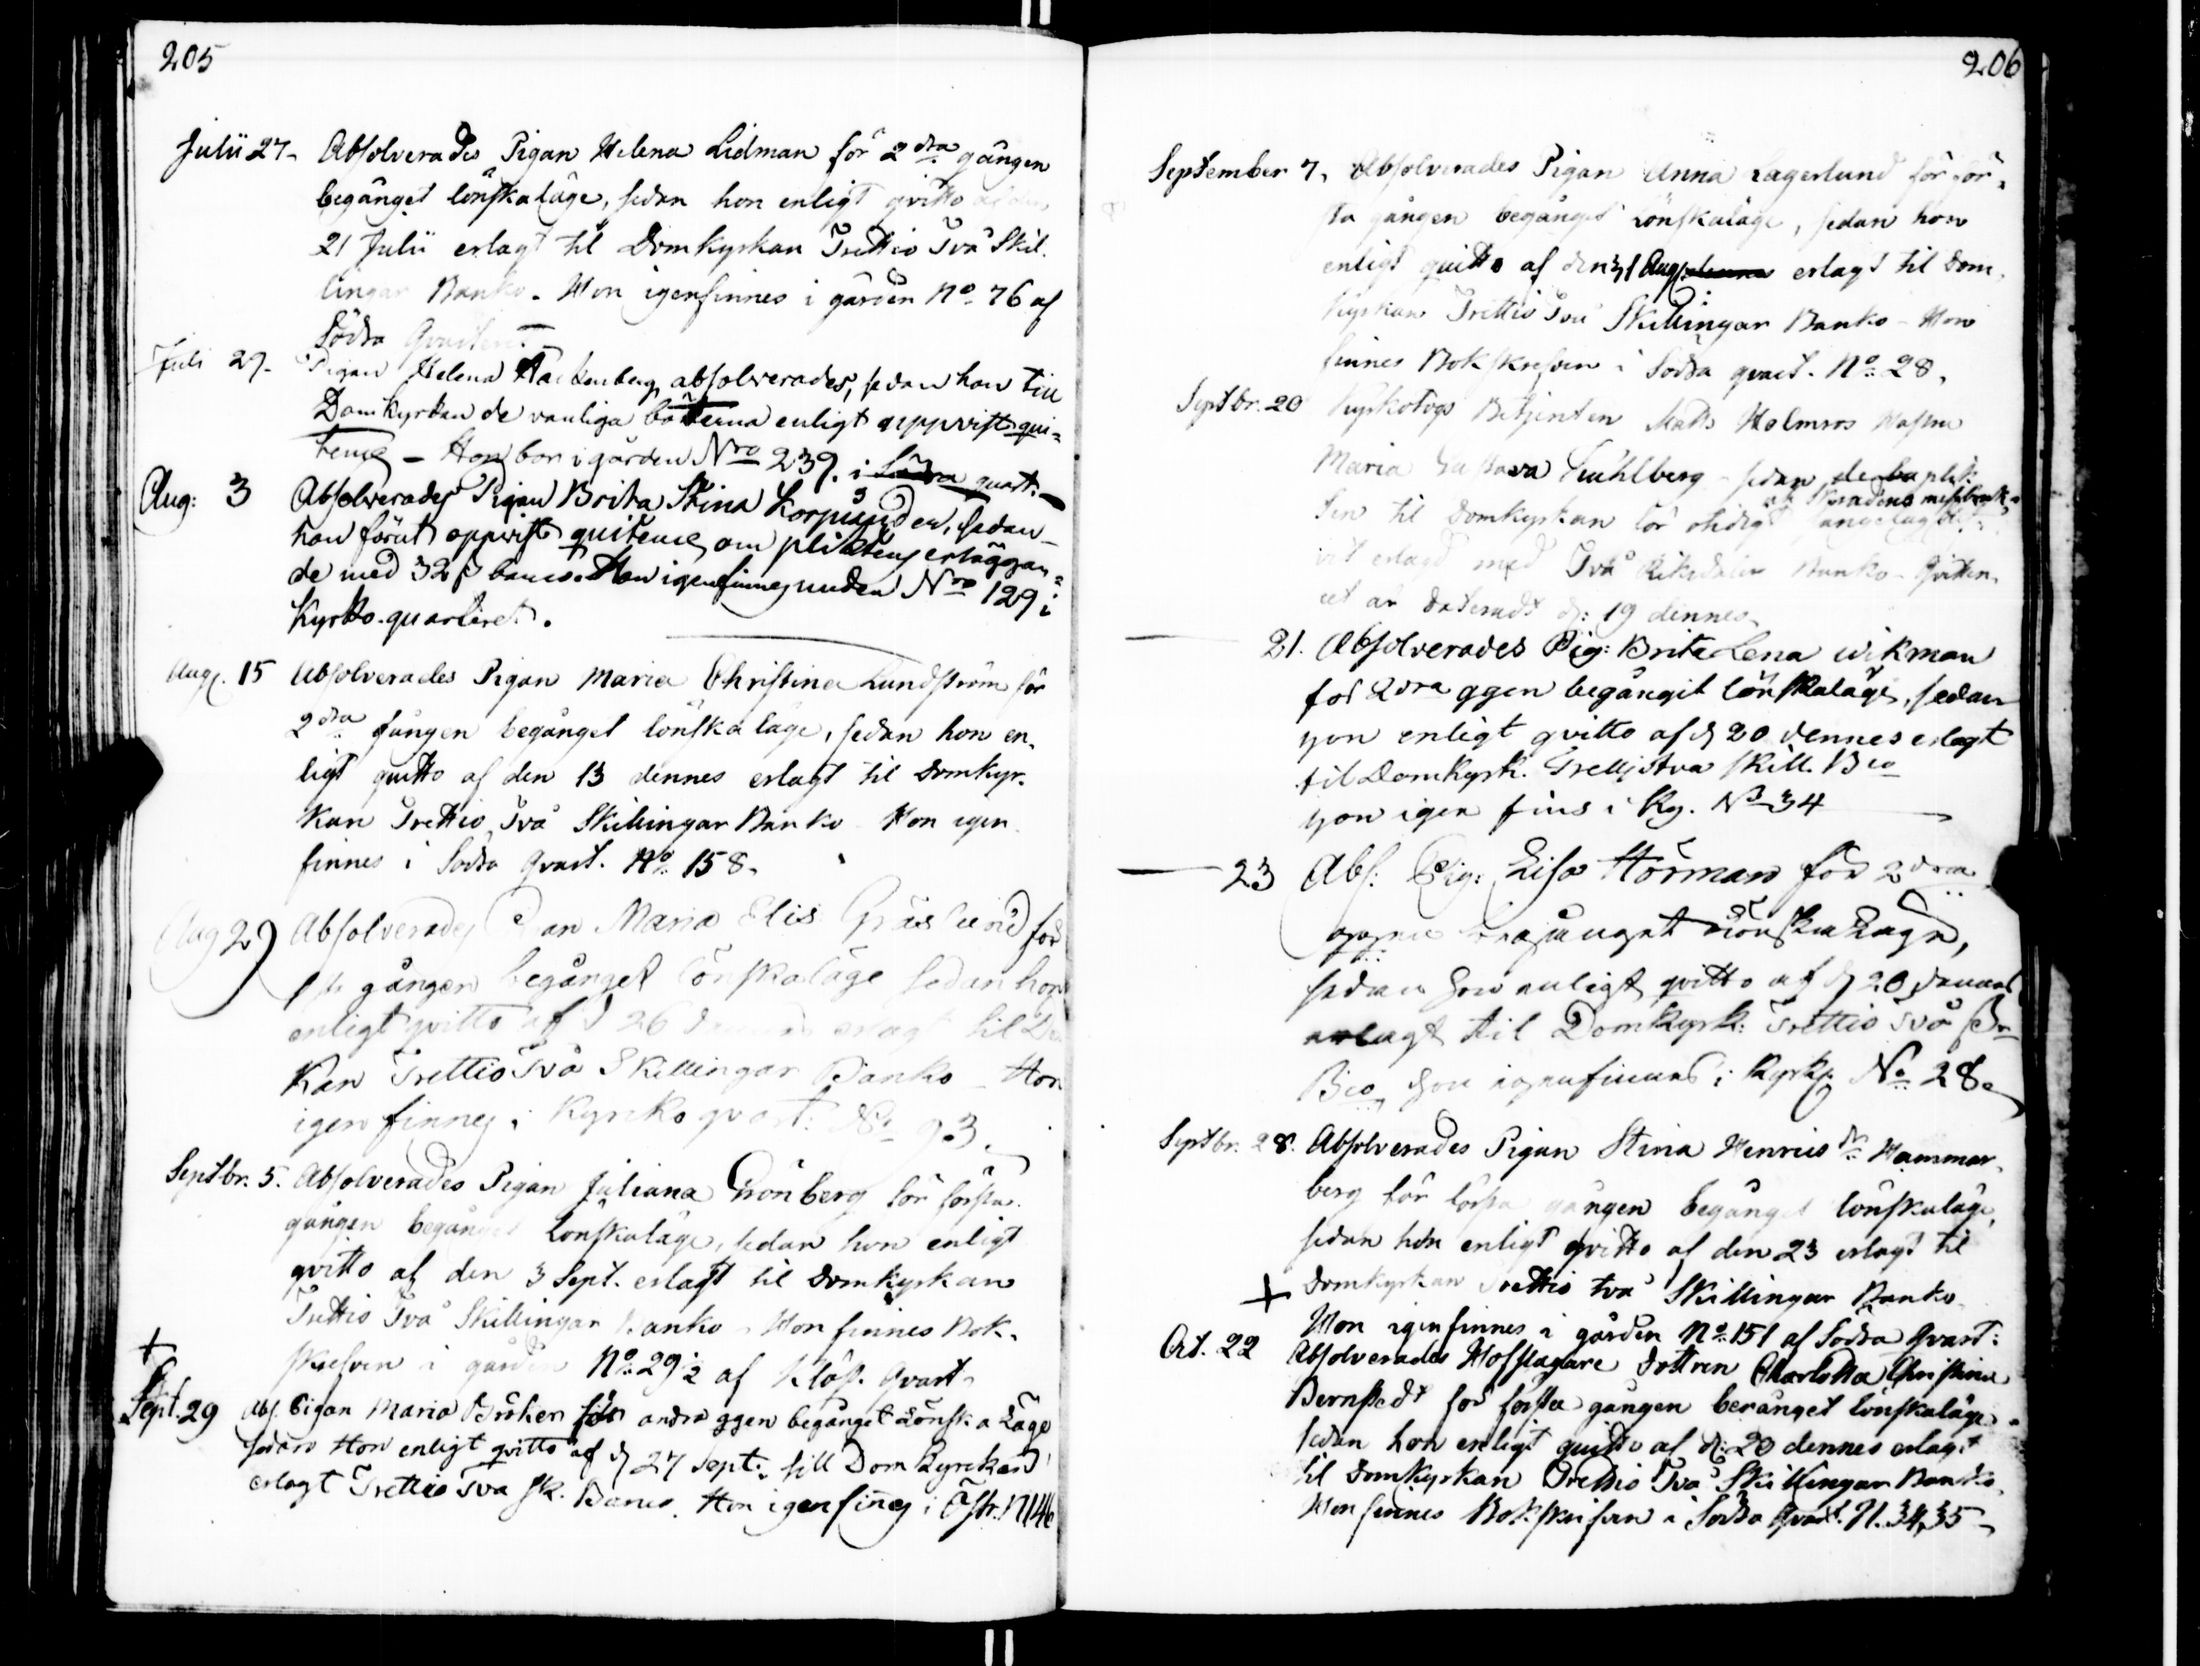 205
Julii 27. Absolverades Pigan Helena Lidman för 2dra gången
begånget lönskaläge, sedan hon enligt qvitto af den
21 Julii erlagt til Domkyrkan Trettio Två Skil.
lingar Banko. Hon igenfinnes i gården No. 76 af
Södra Qvarteret.
Juli 29. Pigan Helena absolverades, sedan hon till
Domkyrkan de vanliga böterna enligt uppvist qui-
tence – Hon bor i gården Nro 239. i Södra quart.
Aug: 3 Absolverades Pigan Brita Stina sedan
hon förut uppvist quitence om pliktens erläggan-
de med 32 ß banco. Hon igenfinnes under Nro 129 i
Kyrko-quarteret.
Aug. 15 Absolverades Pigan Maria Christina Lundström för
2dra gången begånget lönskaläge, sedan hon en-
ligt quitto af den 13 dennes erlagt til Domkyr-
kan Trettio Två Skillingar Banko Hon igen
finnes i Södra Qvart. No. 158.
Aug 29 Absolverades Pigan Maria Elis Gräslund för
1sta gången begånget lönskaläge sedan hon
enligt qvitto af d 26 dennes erlagt til Do
kan Trettio Två Skillingar Banko – Hon
igenfinnes i Kyrko qvart: No 93.
Septbr. 5. Absolverades Pigan Juliana Grönberg för första
gången begånget Lönskaläge, sedan hon enligt
qvitto af den 3 Sept. erlagt til Domkyrkan
Trettio Två Skillingar Banko – Hon finnes Bok-
skrefven i gården No. 29½ af Klöst. Qvart.
+
Sept. 29 Abs. Pigan Maria Bröker för andra ggen begånget Lönska Läge
sedan Hon enligt qvitto af d 27 Sept. till Domkyrckan
erlagt Trettio Två sk. Banco. Hon igenfinnes i Östr. N 146
206
September 7. Absolverades Pigan Anna Lagerlund för för-
sta gången begånget Lönskaläge, sedan hon
enligt quitto af den 31 Aug. erlagt til Dom-
kyrkan Trettio Två Skillingar Banko – Hon
finnes Bokskrefven i Södra qvart. No. 28.
Septbr. 20 Kyrkotogs Betjenten Matts Holmros Hustru
Maria Gustava sedan plik-
ten til Domkyrkan för otidigt
erlagd med Två Riksdaler Banko – Qvitten-
cet är dateradt d: 19 dennes.
21. Absolverades Pig: Brita Lena Wikman
för 2dra ggen begångit lönskaläge, sedan
hon enligt qvitto af d 20 dennes erlagt
til Domkyrk. Trettjotva skill. Bco
hon igen fins i Kq. No 34
23 Abs: Pig: Lisa Hörman för 2dra
ggen begånget Lönska Läge,
sedan hon enligt qvitto af d 20 dennes
erlagt til Domkyrk: Trettio Två
Bco hon igenfinnes i Kyrkq. No. 28.
Septbr. 28. Absolverades Pigan Stina Henrics dr Hammar-
berg för första gången begånget lönskaläge,
sedan hon enligt qvitto af den 23 erlagt til
+ Domkyrkan Trettio två Skillingar Banko.
Hon igenfinnes i gården No. 151 af Södra Qvart:
Oct. 22 Absolverades Hofslagare Dottren Charlotta Christina
Bernstedt för första gången begånget lönskaläge
sedan hon enligt quitto af d: 20 dennes erlagt
til Domkyrkan Trettio Två Skillingar Banko.
Hon finnes Bokskrifven i Södra Qvart. N. 34, 35